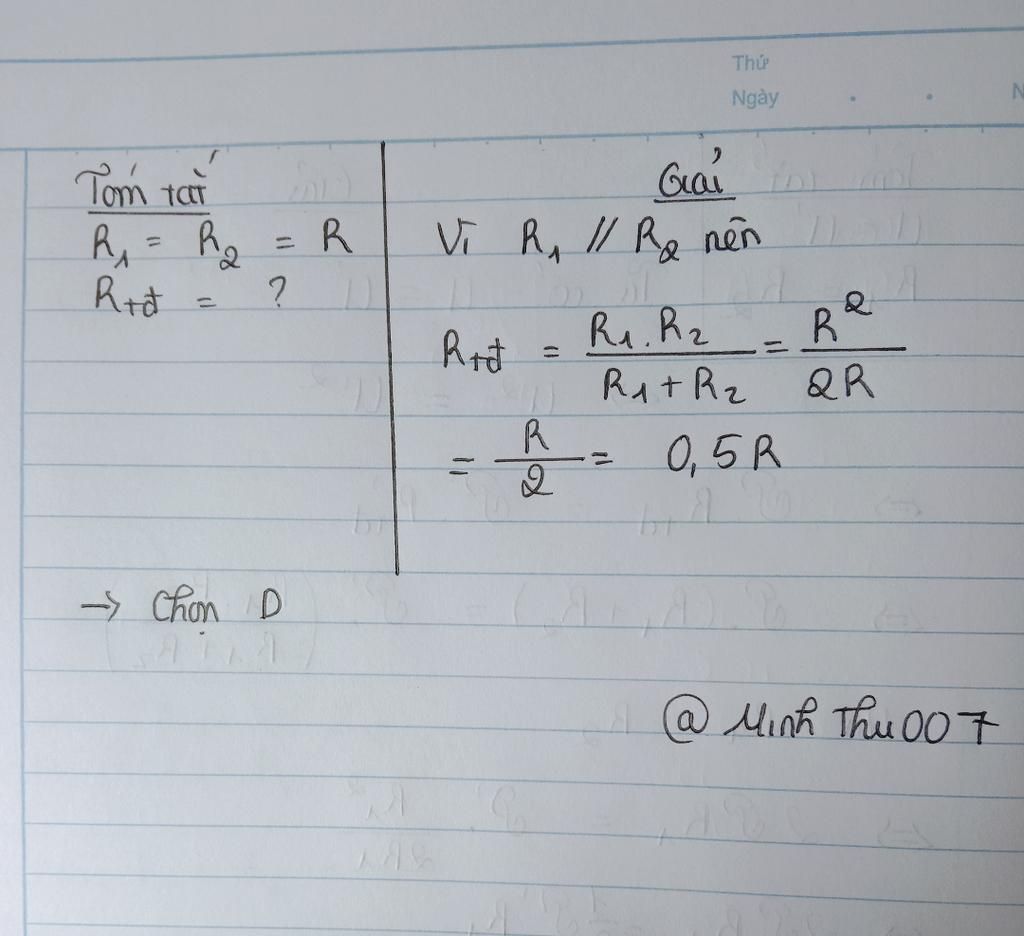 Thứ
Ngày
Tóm tắt
R₁ = R₂ = R
Rtđ = ?
Giải
Vì R₁ // R₂ nên
Rtđ = R₁.R₂ / R₁+R₂ = R² / 2R
= R / 2 = 0,5R
→ Chọn D
@ Minh Thu007